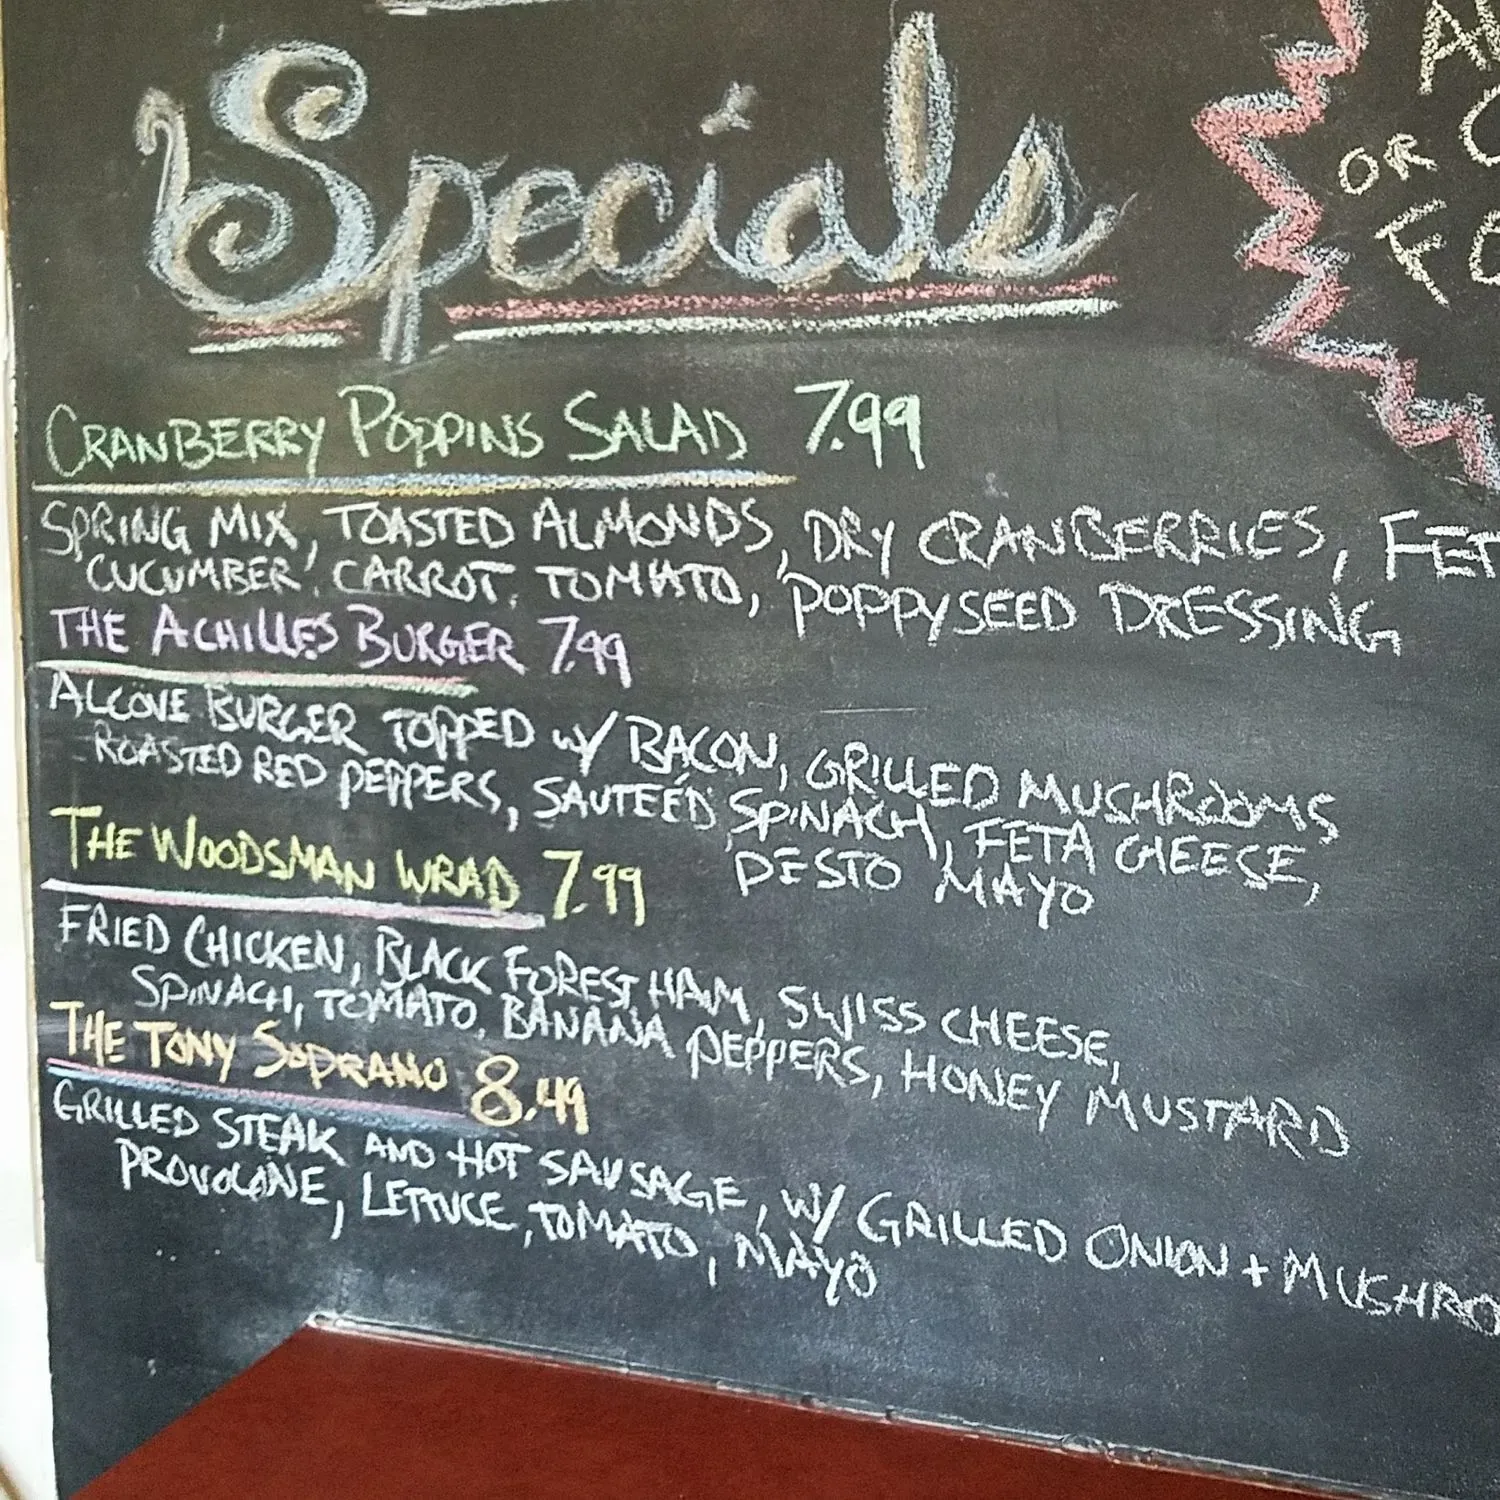 Specials
CRANBERRY POPPINS SALAD 7.99
SPRING MIX, TOASTED ALMONDS, DRY CRANBERRIES, FET
CUCUMBER, CARROT, TOMATO, POPPYSEED DRESSING
THE ACHILLES BURGER 7.99
ALCOVE BURGER TOPPED W/ BACON, GRILLED MUSHROOMS
ROASTED RED PEPPERS, SAUTEÉD SPINACH, FETA CHEESE,
PESTO MAYO
THE WOODSMAN WRAP 7.99
FRIED CHICKEN, BLACK FOREST HAM, SWISS CHEESE,
SPINACH, TOMATO, BANANA PEPPERS, HONEY MUSTARD
THE TONY SOPRANO 8.49
GRILLED STEAK AND HOT SAUSAGE, W/ GRILLED ONION + MUSHRO
PROVOLONE, LETTUCE, TOMATO, MAYO
OR
FO